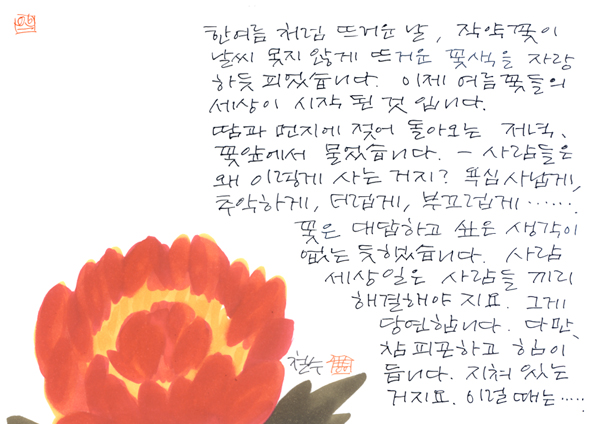 한여름 처럼 뜨거운 날, 작약꽃이
날씨 못지 않게 뜨거운 꽃색을 자랑
하듯 피었습니다. 이제 여름꽃들의
세상이 시작 된 것 입니다.
땀과 먼지에 젖어 돌아오는 저녁,
꽃앞에서 물었습니다. – 사람들은
왜 이렇게 사는 거지? 욕심사납게,
추악하게, 더럽게, 부끄럽게……
꽃은 대답하고 싶은 생각이
없는 듯했습니다. 사람
세상일은 사람들 끼리
해결해야 지요. 그게
당연합니다. 다만,
참 피곤하고 힘이
듭니다. 지쳐 있는
거지요. 이럴 때는……
철수